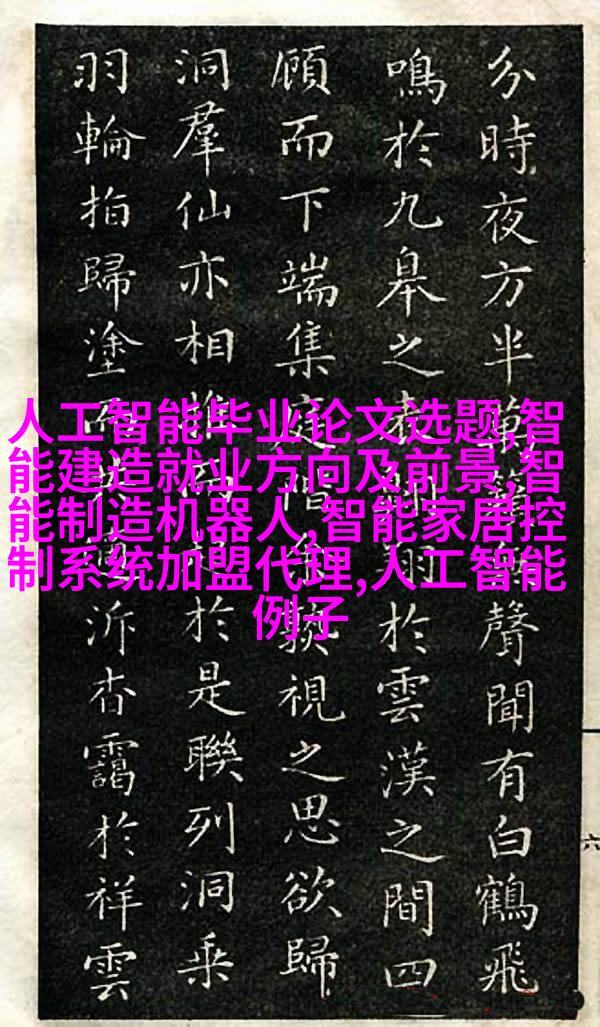 分時夜方半萬籟聲聞有白鶴飛
鳴於九皋之表翔於雲漢之間四
顧而下端集庭階視之思欲歸
洞羣仙亦相於是聯列洞乘
羽輪拍歸塗而泝杳靄於祥雲
人工智能毕业论文选题,智
能建造就业方向及前景,智
能制造机器人,智能家居控
制系统加盟代理,人工智能
例子
六